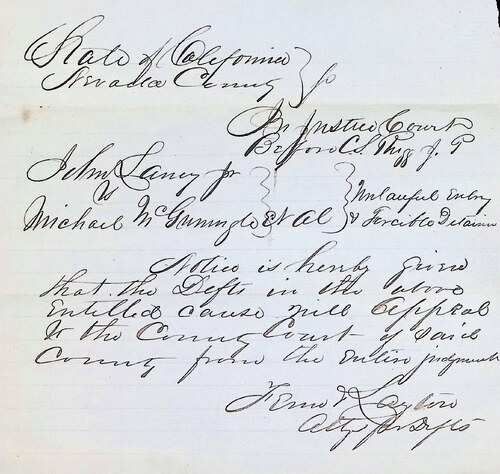 State of California
Nevada County } ss
In Justice Court
Before C.S. J. P
John Laney Jr
vs
Michael et al } Unlawful Entry
& Forcible Detainer
Notice is hereby given
that the Defts in the above
Entitled cause will Appeal
to the County Court of said
County from the entire judgment
& Layton
Attys for Defts